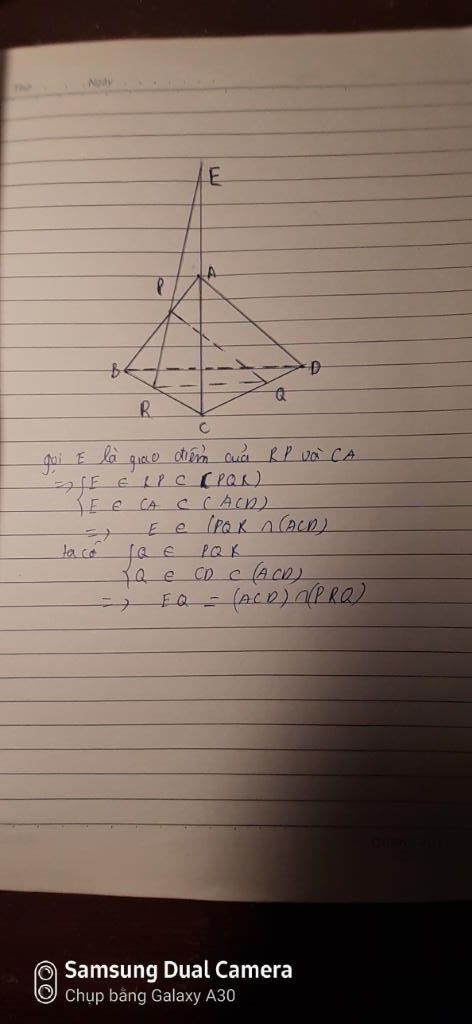 Ngày
E
A
P
B
D
Q
R
C
gọi E là giao điểm của RP và CA
=> { E ∈ RP ⊂ (PQR)
{ E ∈ CA ⊂ (ACD)
=> E ∈ (PQR ∩ (ACD)
ta có { Q ∈ PQR
{ Q ∈ CD ⊂ (ACD)
=> EQ = (ACD) ∩ (PRQ)
Samsung Dual Camera
Chụp bằng Galaxy A30